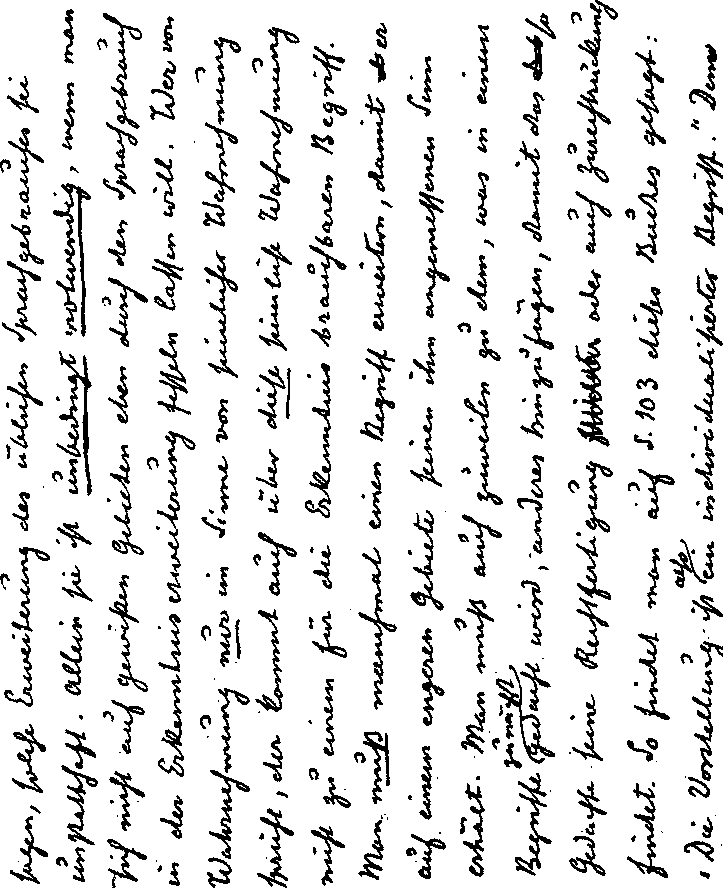 sagen, solche Erweiterung des üblichen Sprachgebrauches sei
unstatthaft. Allein sie ist unbedingt notwendig, wenn man
sich nicht auf gewissen Gebieten eben durch den Sprachgebrauch
in der Erkenntniserweiterung fesseln lassen will. Wer von
Wahrnehmung nur im Sinne von sinnlicher Wahrnehmung
spricht, der kommt auch über diese sinnliche Wahrnehmung
nicht zu einem für die Erkenntnis brauchbaren Begriff.
Man muß manchmal einen Begriff erweitern, damit er
auf einem engeren Gebiete seinen ihm angemessenen Sinn
erhält. Man muß auch zuweilen zu dem, was in einem
Begriffe zunächst gedacht wird, anderes hinzufügen, damit das so
Gedachte seine Rechtfertigung oder auch Zurechtrückung
findet. So findet man auf S. 103 dieses Buches gesagt:
„Die Vorstellung ist also ein individualisierter Begriff." Dem